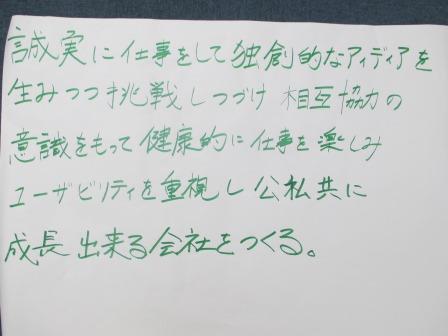 誠実に仕事をして独創的なアイディアを
生みつつ挑戦しつづけ 相互協力の
意識をもって健康的に仕事を楽しみ
ユーザビリティを重視し公私共に
成長出来る会社をつくる。